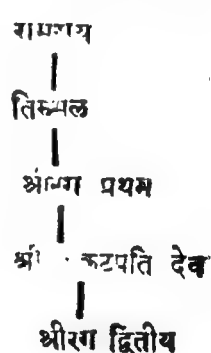 रामराय
तिरुमल
श्रीरंग प्रथम
श्री कटपति देव
श्रीरग द्वितीय